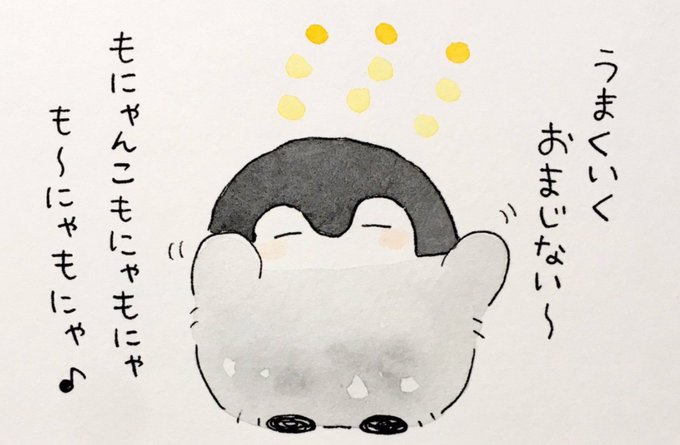 うまくいく
おまじない〜
もにゃんこもにゃもにゃ
も〜にゃもにゃ♪